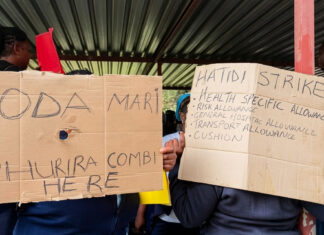 ODA MARI
HURIRA COMBI
HERE
HATIDI STRIKE
- HEALTH SPECIFIC ALLOWANC
- RISK ALLOWANCE
- GENERAL HOSPITAL ALLOWANCE
- TRANSPORT ALLOWANCE
- CUSHION